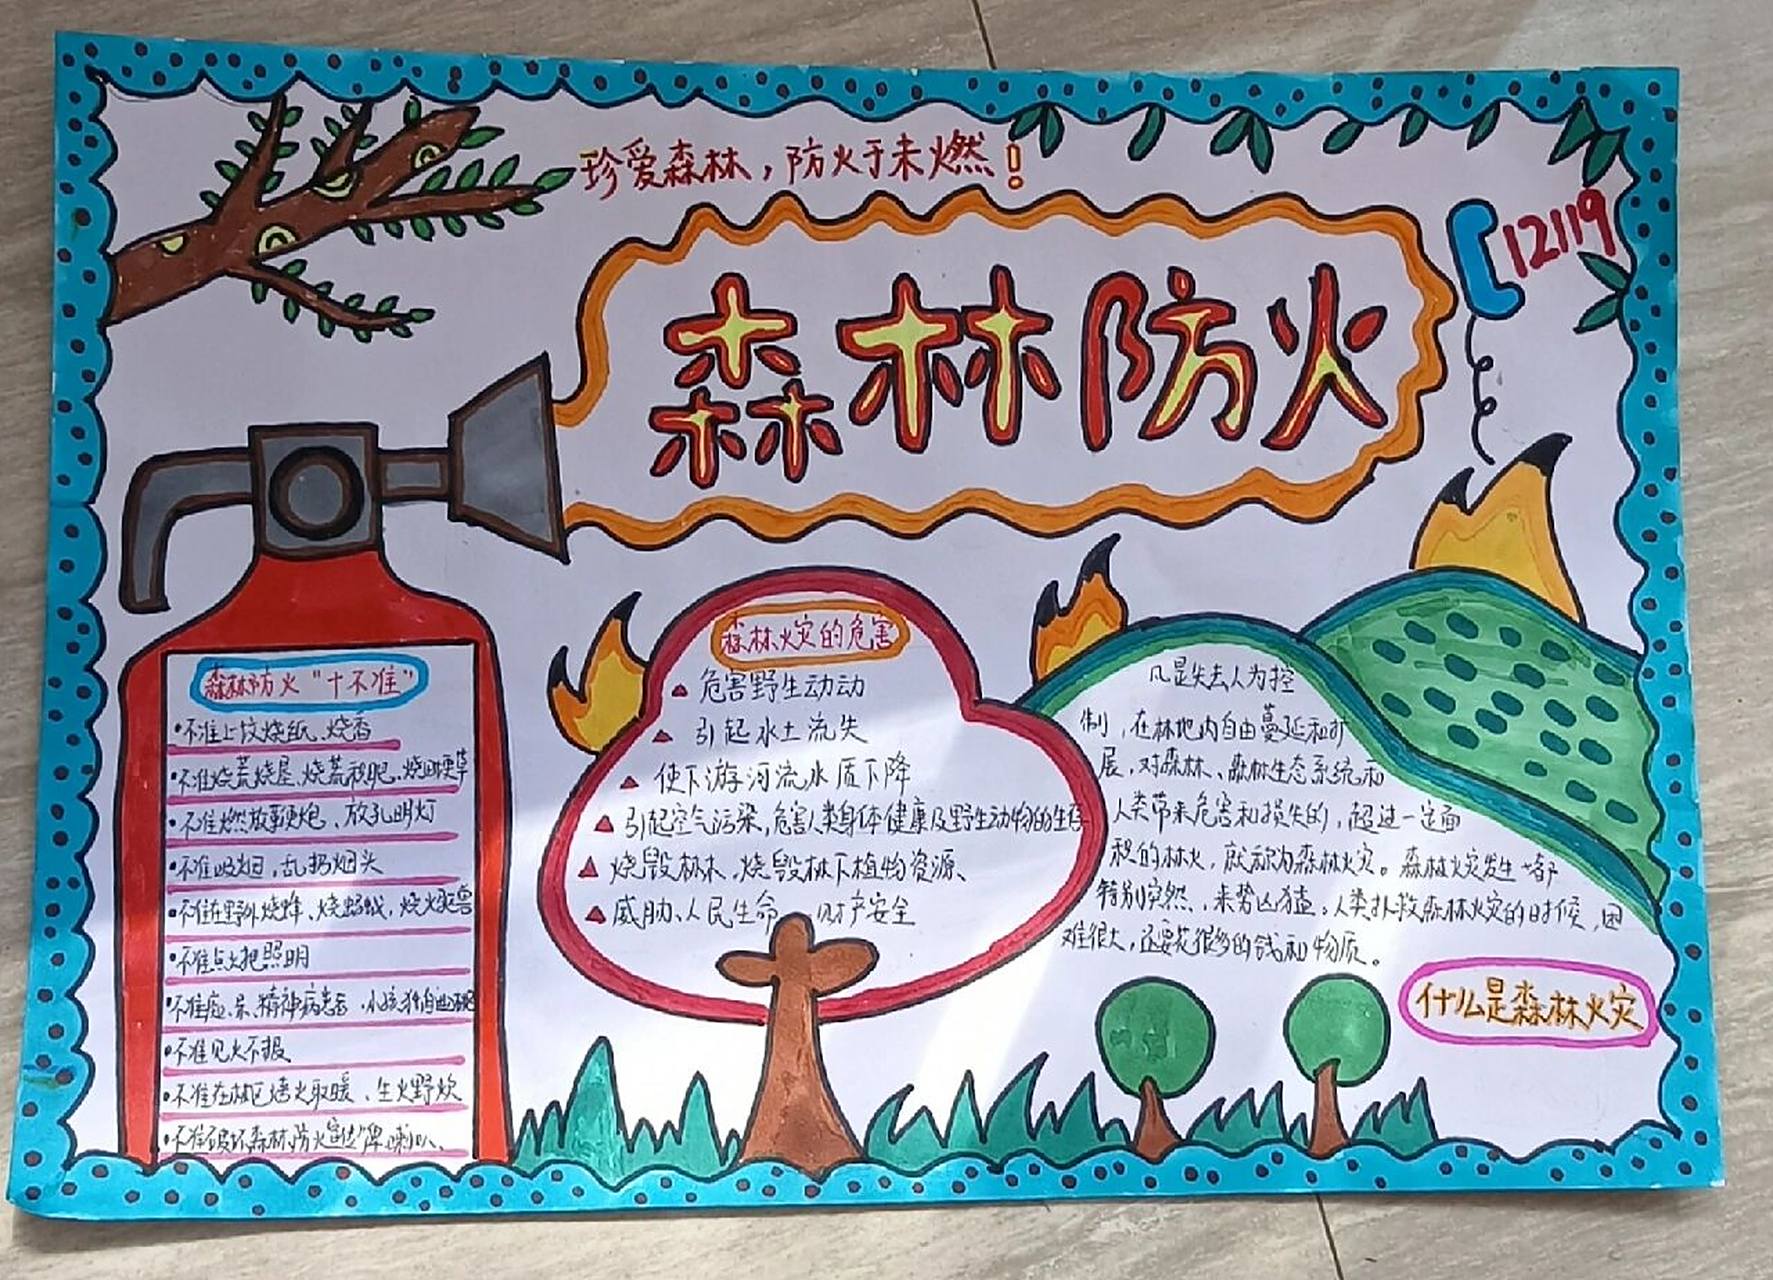 珍爱森林，防火于未燃！
12119
森林防火
森林防火“十不准”
•不准上坟烧纸、烧香
•不准烧荒烧屋、烧荒积肥、烧田埂草
•不准燃放鞭炮、放孔明灯
•不准吸烟，乱扔烟头
•不准在野外烧蜂、烧蚂蚁，烧火驱兽
•不准点火把照明
•不准痴、呆、精神病患者、小孩独自进
•不准见火不报
•不准在林区烤火取暖、生火野炊
•不准破坏森林防火宣传牌喇叭、
森林火灾的危害
▲ 危害野生动动
▲ 引起水土流失
▲ 使下游河流水质下降
▲ 引起空气污染，危害人类身体健康及野生动物的生存
▲ 烧毁林木、烧毁林下植物资源、
▲ 威胁、人民生命 财产安全
凡是失去人为控
制，在林地内自由蔓延和扩
展，对森林、森林生态系统和
人类带来危害和损失的，超过一定面
积的林火，就称为森林火灾。森林火灾发生一般
特别突然，来势凶猛。人类扑救森林火灾的时候，困
难很大，还要花很多的钱和物质。
什么是森林火灾